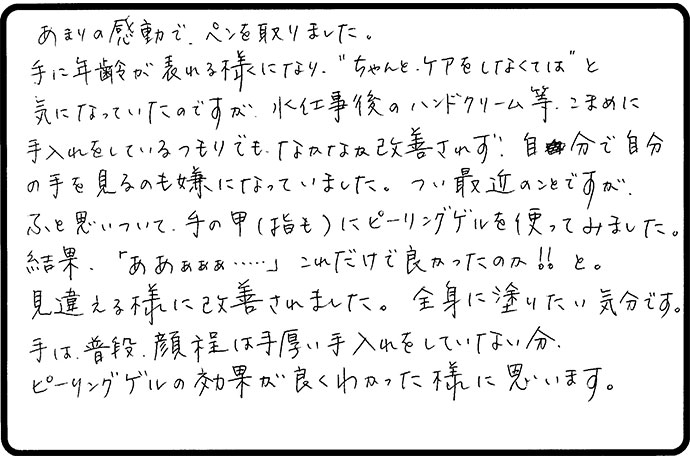 あまりの感動で、ペンを取りました。
手に年齢が表れる様になり、"ちゃんと、ケアをしなくては"と
気になっていたのですが、水仕事後のハンドクリーム等、こまめに
手入れをしているつもりでも、なかなか改善されず、自分で自分
の手を見るのも嫌になっていました。つい最近のことですが、
ふと思いついて、手の甲(指も)にピーリングゲルを使ってみました。
結果、「ああぁぁぁ……」これだけで良かったのか!!と。
見違える様に改善されました。全身に塗りたい気分です。
手は、普段、顔程は手厚い手入れをしていない分、
ピーリングゲルの効果が良くわかった様に思います。